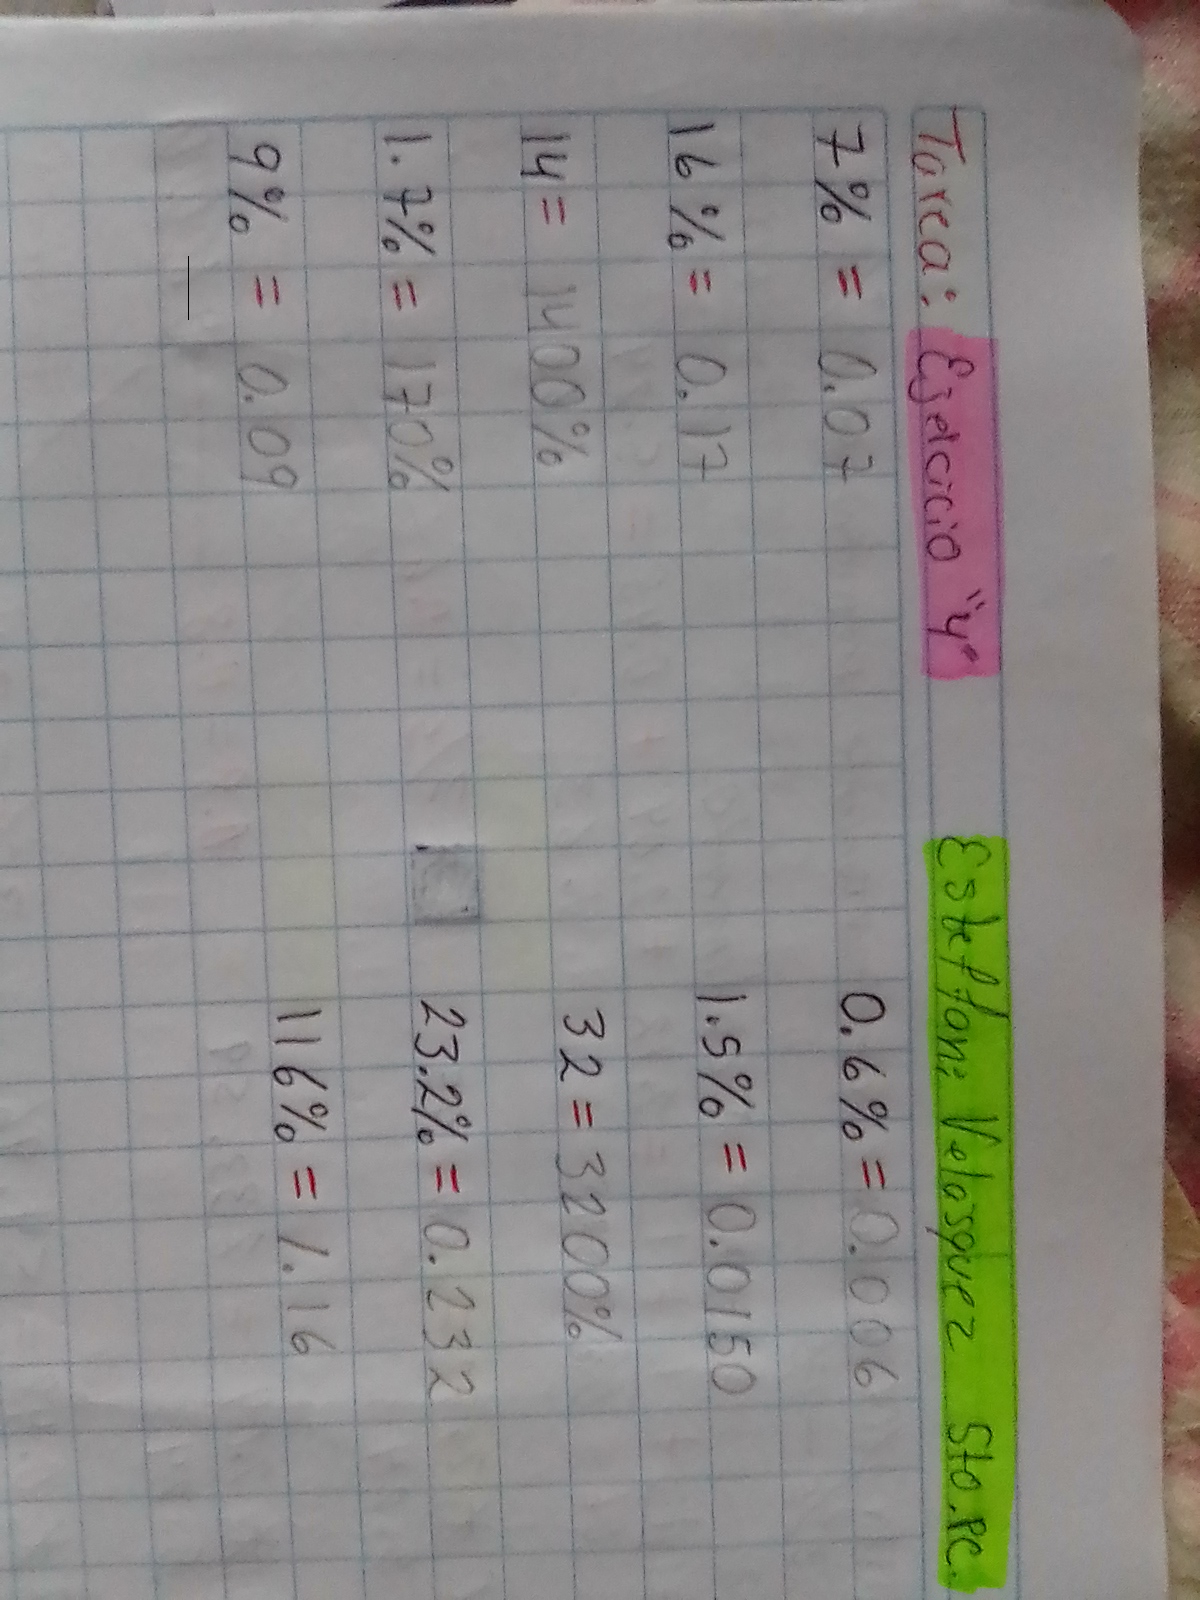 Tarea: Ejercicio "y" Esteffani Velosquez 5to.PC.
7% = 0.07 0.6% = 0.006
16% = 0.17 1.5% = 0.0150
14 = 1400% 32 = 3200%
1.7% = 170% 23.2% = 0.232
9% = 0.09 116% = 1.16